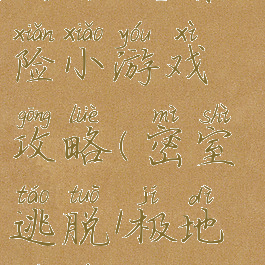 xiǎn xiǎo yóu xì
险小游戏
gōng lüè mì shì
攻略(密室
táo tuō jí dì
逃脱/极地